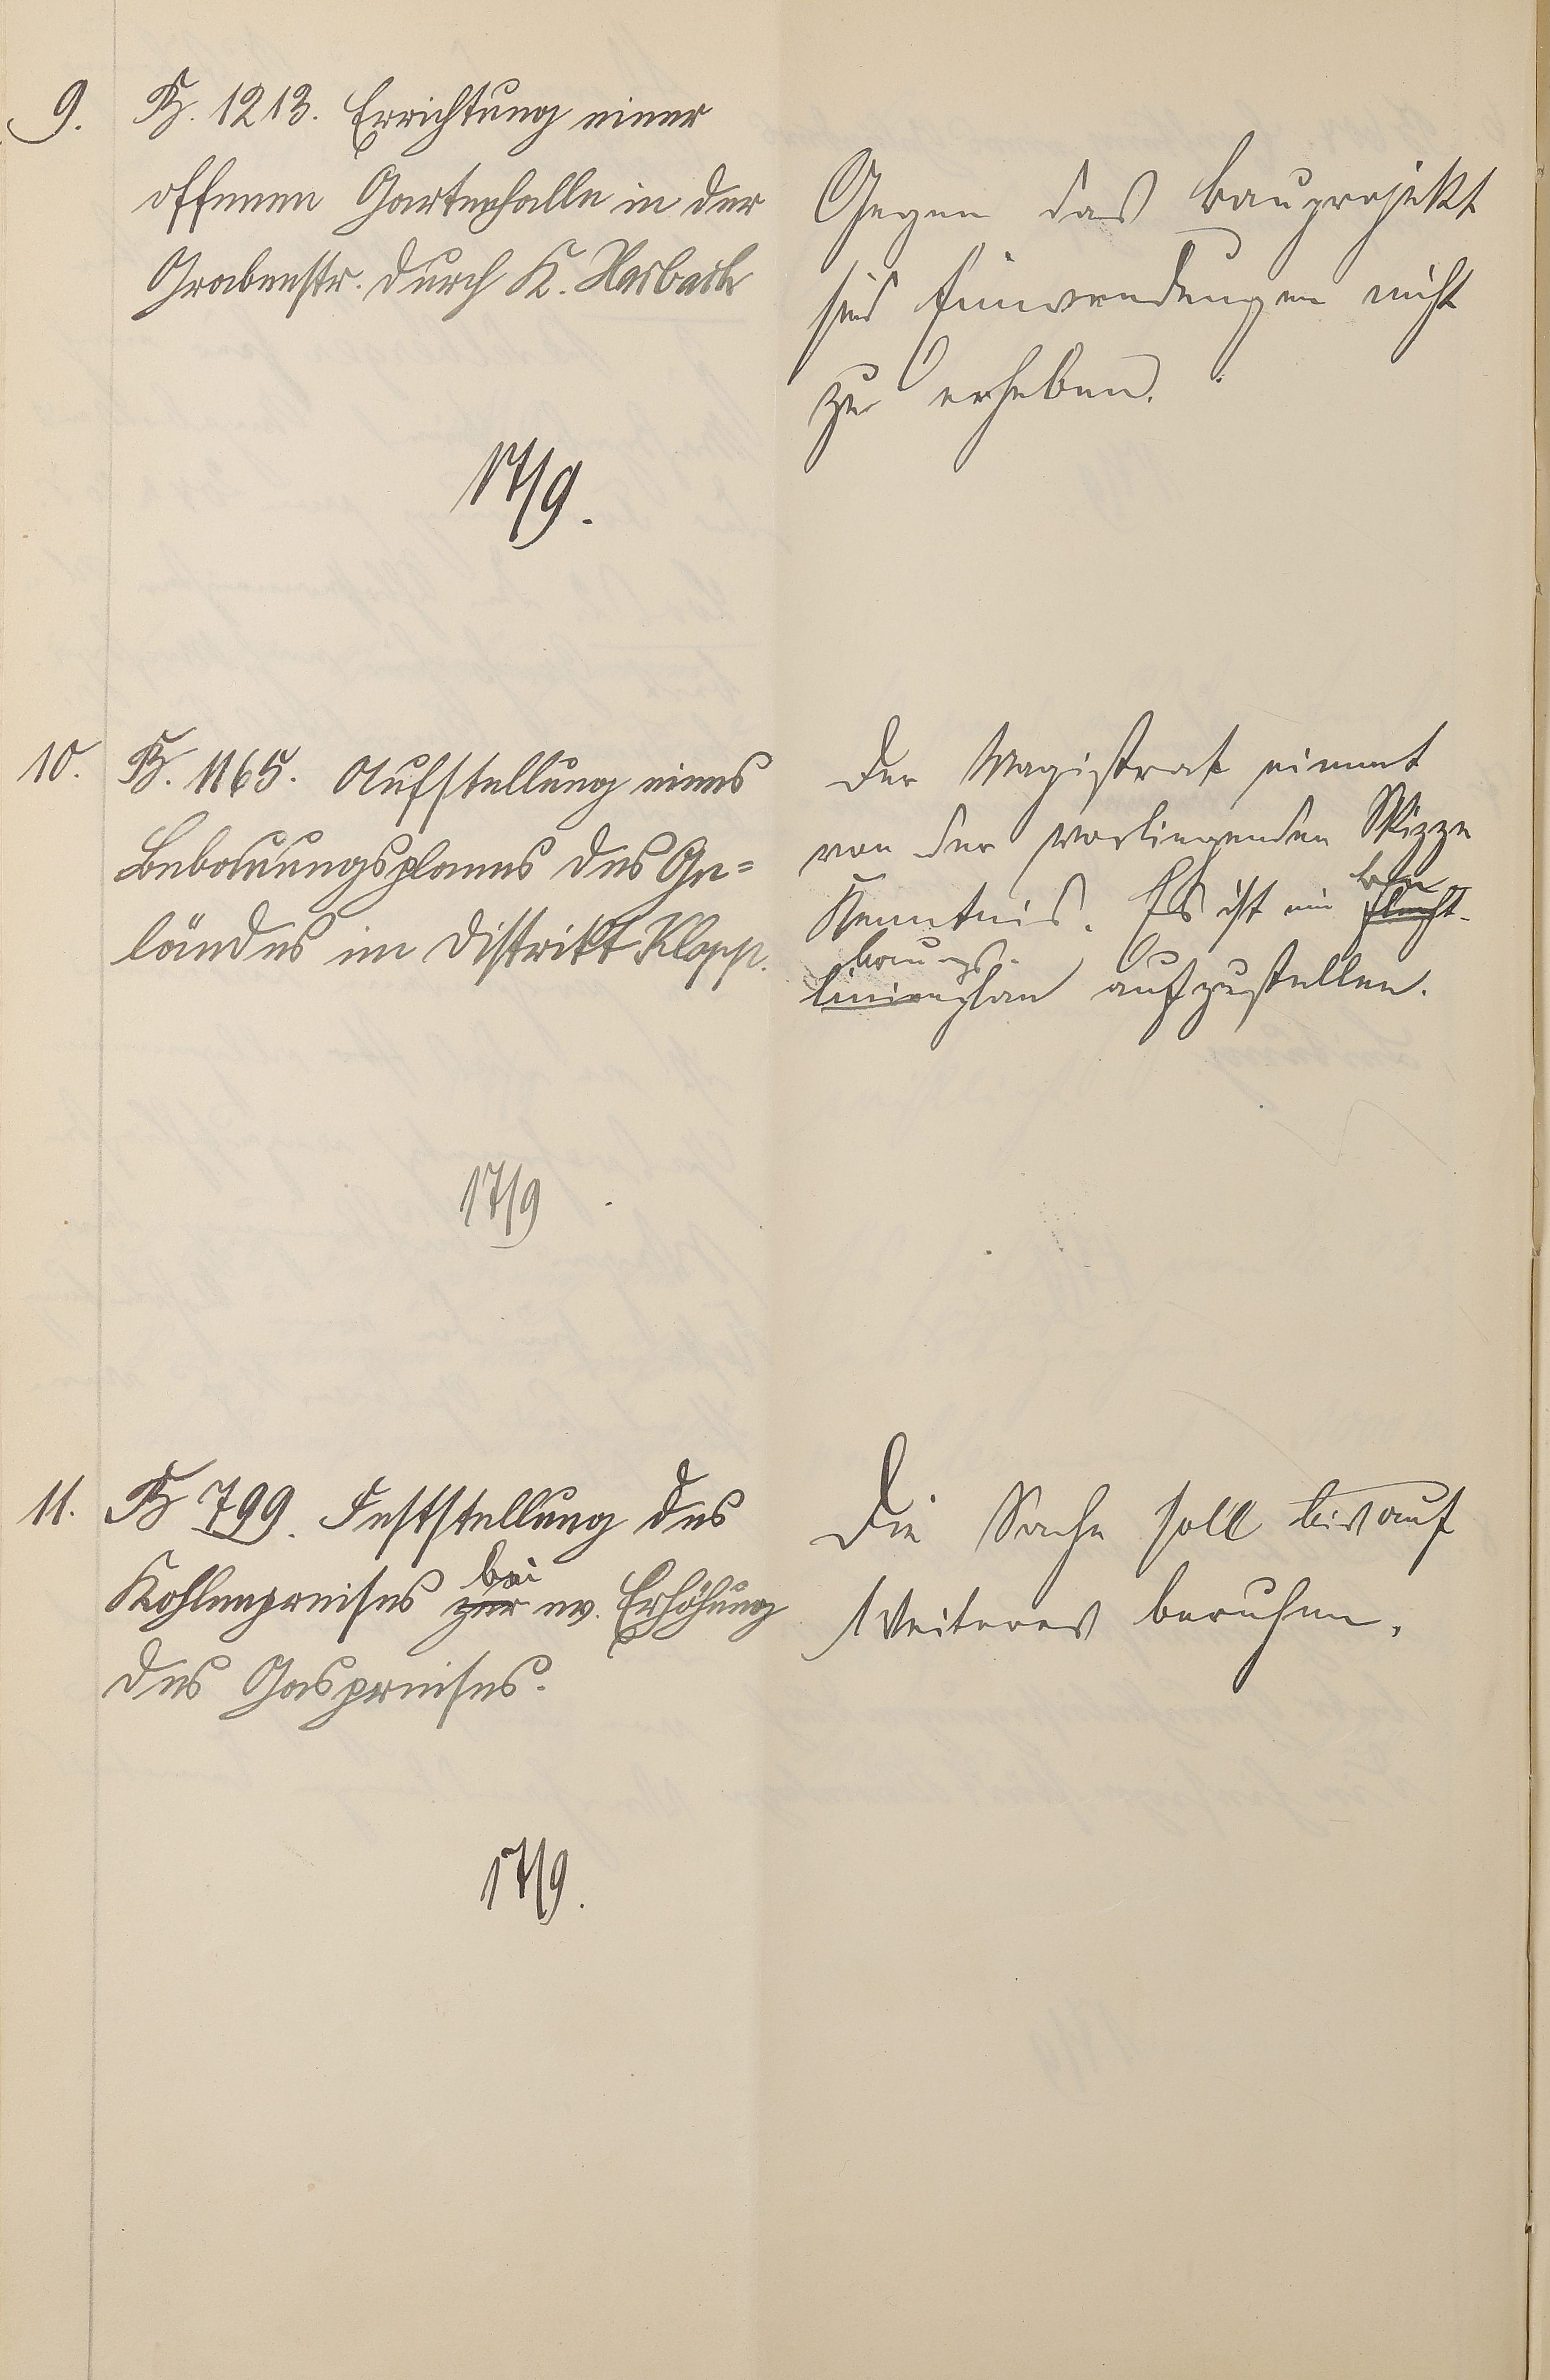 9. B. 1213. Errichtung einer
offenen Gartenhalle in der
Grabenstr. durch K. Harbach
17/9.
Gegen das Bauprojekt
sind Einwendungen nicht
zu erheben.
10. B. 1165. Aufstellung eines
Bebauungsplanes des Ge=
ländes im Distrikt Klopp.
17/9
Der Magistrat nimmt
von der vorliegenden Skizze
Kenntnis. Es ist ein Flucht-
be
bauungs-
linienplan aufzustellen.
11. B 799. Feststellung des
Kohlenpreises zur ev. Erhöhung
bei
des Gaspreises.
17/9.
Die Sache soll bis auf
Weiteres beruhen.